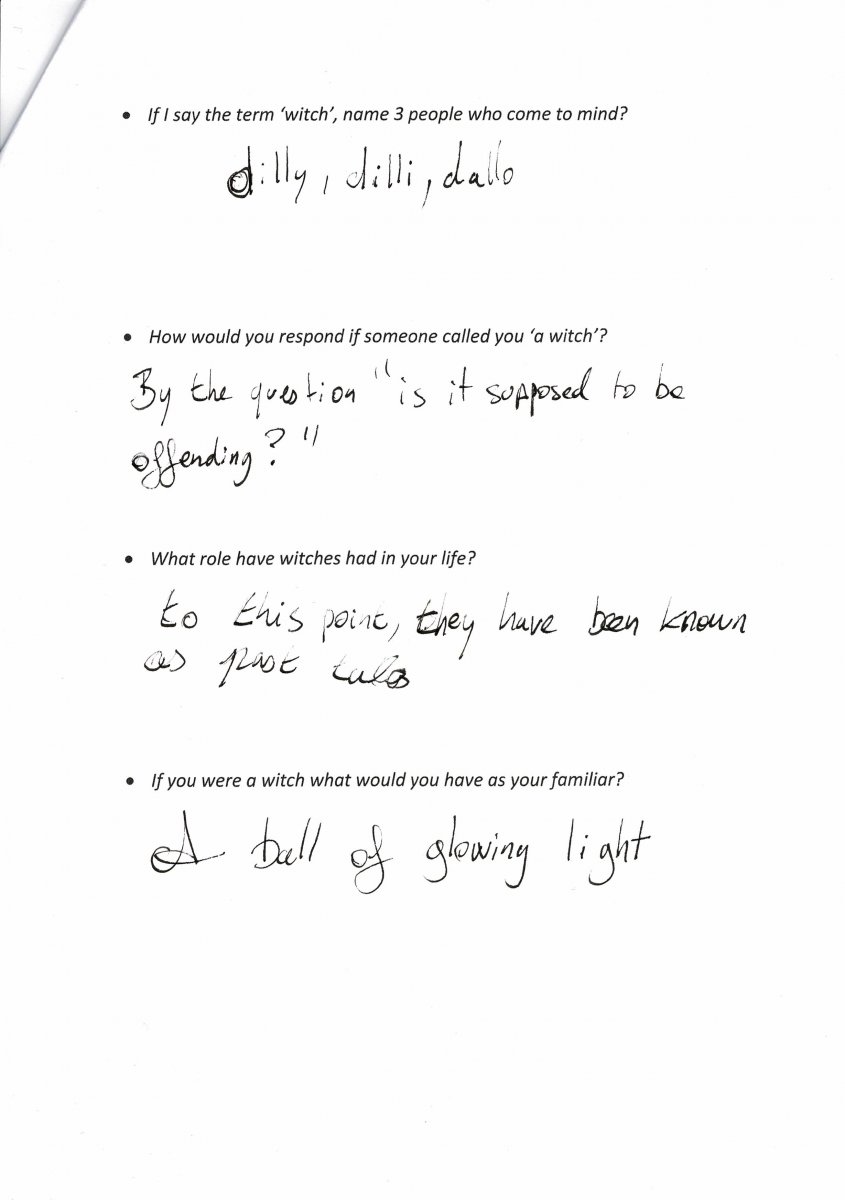 • If I say the term ‘witch’, name 3 people who come to mind?
dilly, dilli, dallo
• How would you respond if someone called you ‘a witch’?
By the question "is it supposed to be
offending?"
• What role have witches had in your life?
to this point, they have been known
as past tales
• If you were a witch what would you have as your familiar?
A ball of glowing light